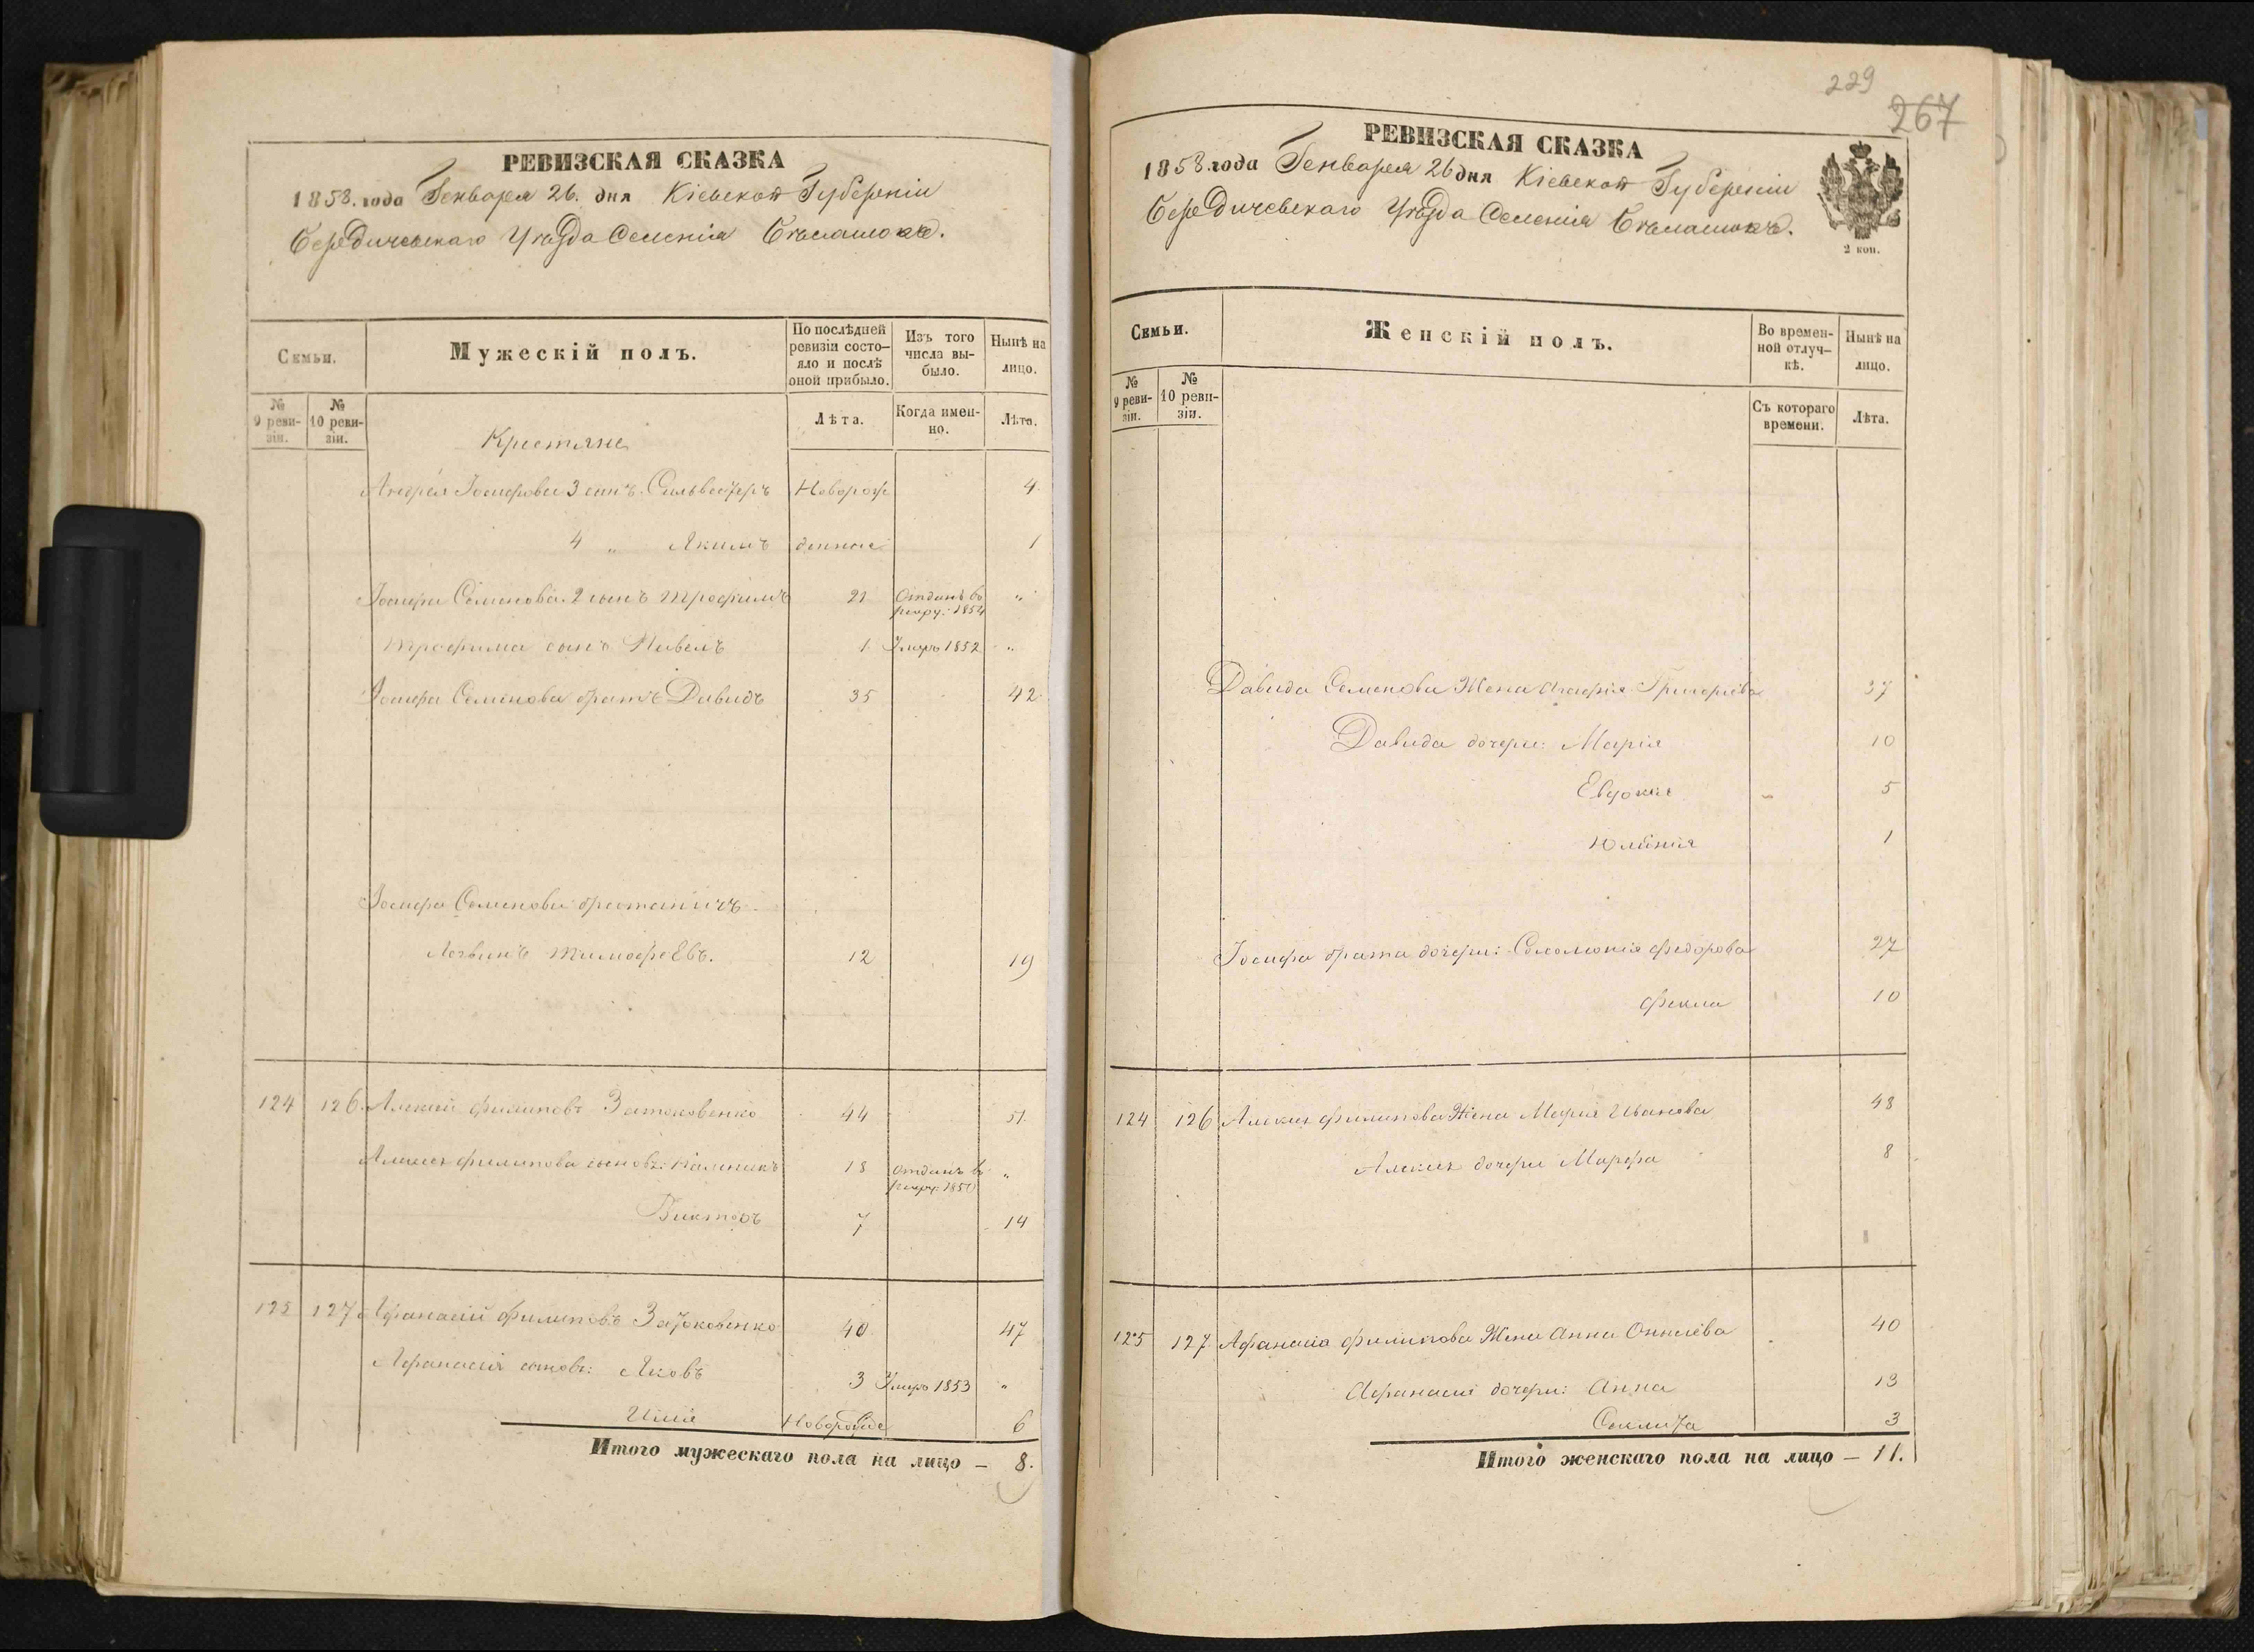 РЕВИЗСКАЯ СКАЗКА
1858. года Генваря 26. дня Кіевской Губерніи
Бердичевскаго Уѣзда Селенія Бѣлашокъ.
Семьи.
Мужескій полъ.
По послѣдней ревизіи состояло и послѣ оной прибыло.
Изъ того числа выбыло.
Нынѣ на лицо.
№ 9 ревизіи.
№ 10 ревизіи.
Крестяне
Лѣта.
Когда именно.
Лѣта.
Андрея Іосифова 3 сынъ. Сильвестеръ Новорож 4.
4 „ Якимъ денные 1
Іосифа Семенова. 2 сынъ Трофимъ 21 Отданъ въ рекру: 1854 „
Трофима сынъ Павелъ 1 Умеръ 1852 „
Іосифа Семенова братъ Давидъ 35 42
Іосифа Семенова братаничъ
Логвинъ Тимофеевъ. 12 19
124 126. Алексей Филиповъ Затоковенко 44 51.
Алексея Филипова сыновъ: Калиникъ 18 отданъ въ рекру: 1850 „
Викторъ 7 14
125 127 Афанасий Филиповъ Затоковенко 40 47
Афанасия сыновъ: Яковъ 3 Умеръ 1853 „
Илія Новорожде 6
Итого мужескаго пола на лицо – 8.
229
267
РЕВИЗСКАЯ СКАЗКА
1858 года Генваря 26 дня Кіевской Губерніи
Бердичевскаго Уѣзда Селенія Бѣлашокъ.
2 коп.
Семьи.
Женскій полъ.
Во временной отлучкѣ.
Нынѣ на лицо.
№ 9 ревизіи.
№ 10 ревизіи.
Съ котораго времени.
Лѣта.
Давида Семенова Жена Агафія Григоріева 37
Давида дочери: Марія 10
Евдокия 5
Юлинія 1
Іосифа брата дочери: Соломонія Федорова 27
Фекла 10
124 126 Алексея Филипова Жена Марія Иванова 48
Алексея дочери Марфа 8
125 127. Афанасіа Филипова Жена Анна 40
Афанасия дочери: Анна 13
3
Итого женскаго пола на лицо – 11.